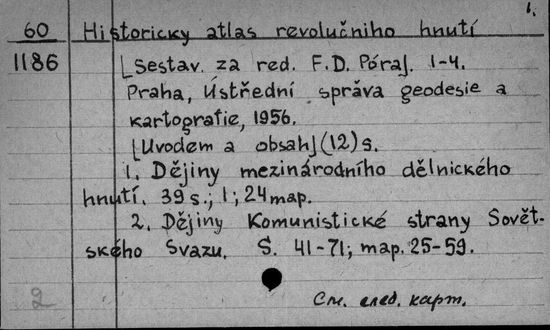 1.
60 Historický atlas revolučního hnutí
1186 [Sestav. za red. F.D. Póraj. 1-4.
Praha, Ústřední správa geodesie a
kartografie, 1956.
[Úvodem a obsah] (12) s.
1. Dějiny mezinárodního dělnického
hnutí. 39 s.; 1; 24 map.
2. Dějiny Komunistické strany Sovět-
ského Svazu. S. 41-71; map. 25-59.
2 См. след. карт.